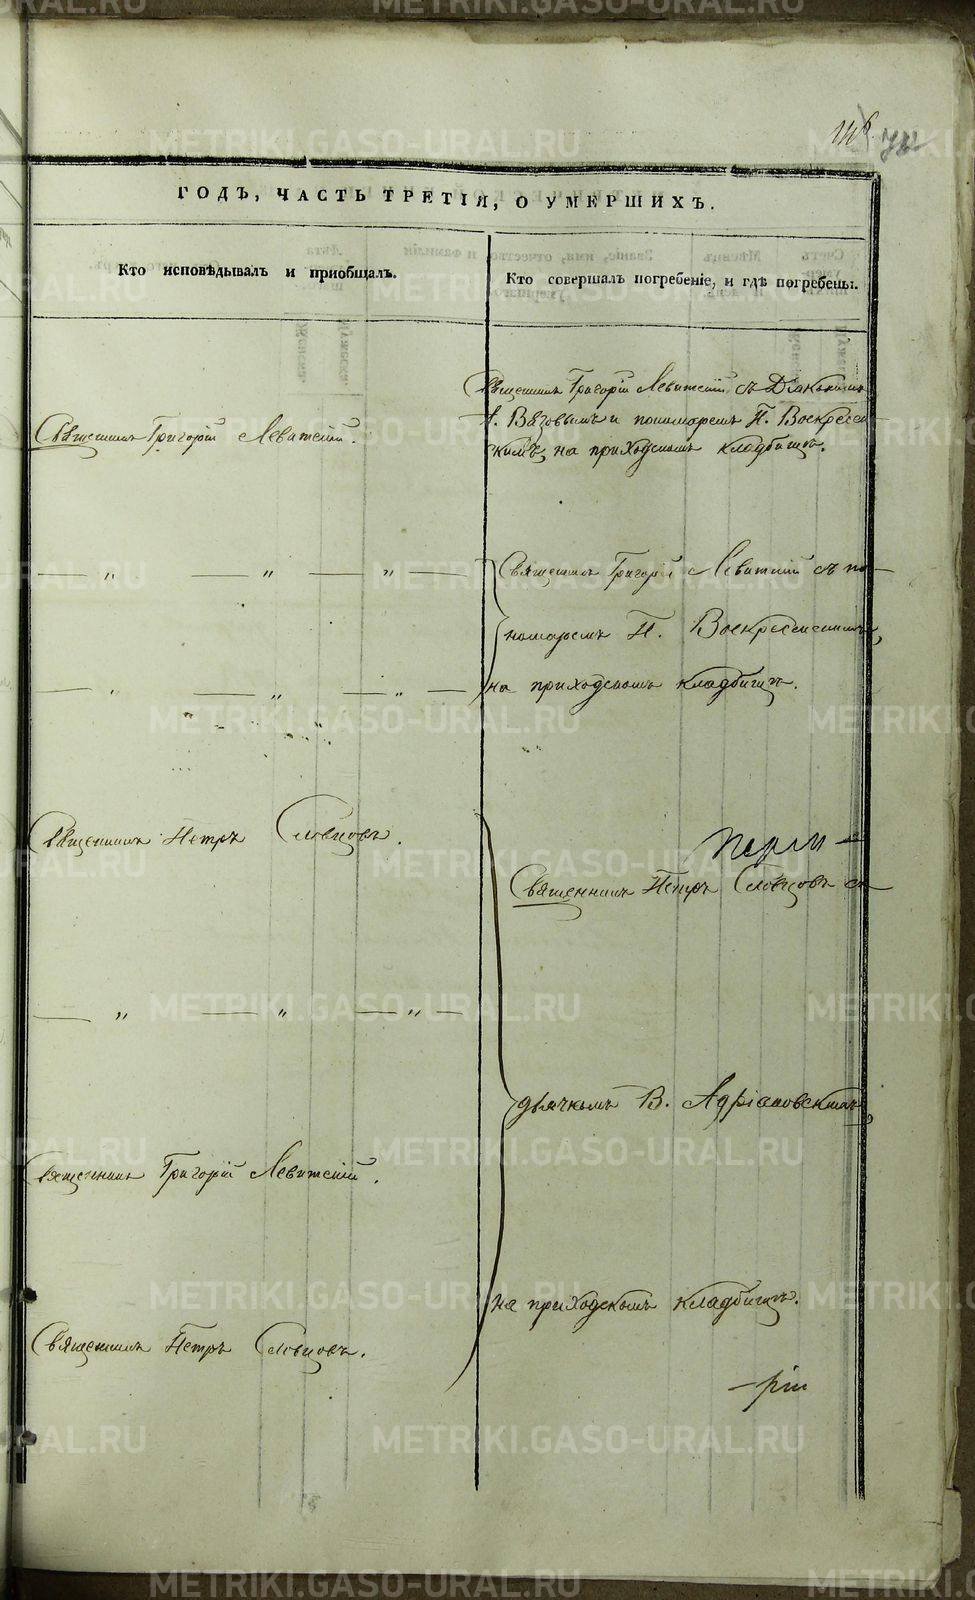 METRIKI.GASO-URAL.RU
ГОДЪ, ЧАСТЬ ТРЕТІЯ, О УМЕРШИХЪ.
Кто исповѣдывалъ и пріобщалъ.
Кто совершалъ погребеніе, и гдѣ погребены.
Священникъ Григорій Левитскій.
Священникъ Григорій Левитскій съ Діакономъ
А. Вязовымъ и пономаремъ П. Воскресен
скимъ, на приходскомъ кладбищѣ.
— „ — „ — „ —
Священникъ Григорій Левитскій съ по-
номаремъ П. Воскресенскимъ,
— „ — „ — „ —
на приходскомъ кладбищѣ.
Священникъ Петръ Словцовъ.
Священникъ Петръ Словцовъ съ
— „ — „ — „ —
дьячкомъ В. Адріановскимъ,
Священникъ Григорій Левитскій.
на приходскомъ кладбищѣ.
Священникъ Петръ Словцовъ.
—рій